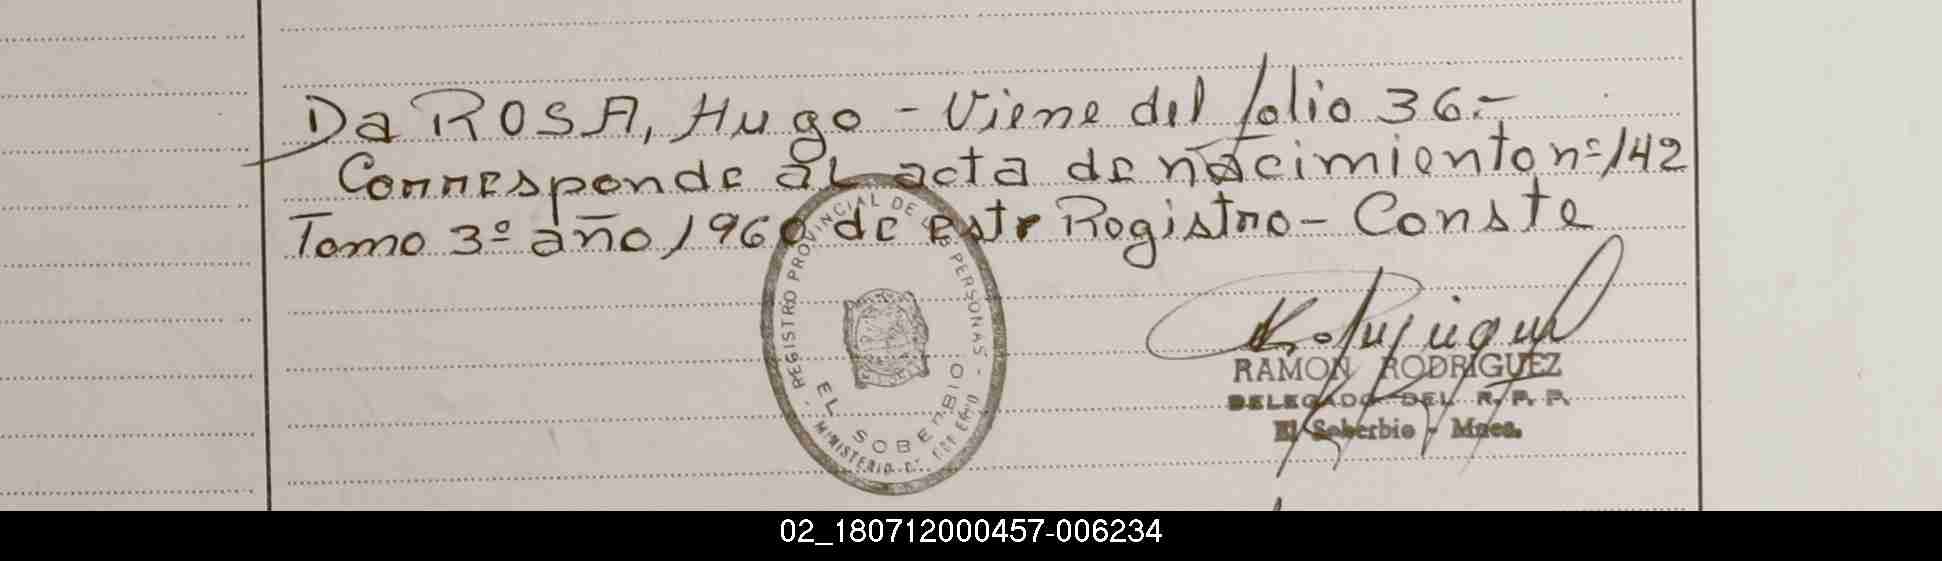 Da ROSA, Hugo - Viene del folio 36.-
Corresponde al acta de nacimiento nº 142
Tomo 3º año 1960 de este Registro - Conste
REGISTRO PROVINCIAL DE LAS PERSONAS
EL SOBERBIO
MINISTERIO DE
RAMON RODRIGUEZ
DELEGADO DEL R. P. P.
El Soberbio - Mnes.
02_180712000457-006234